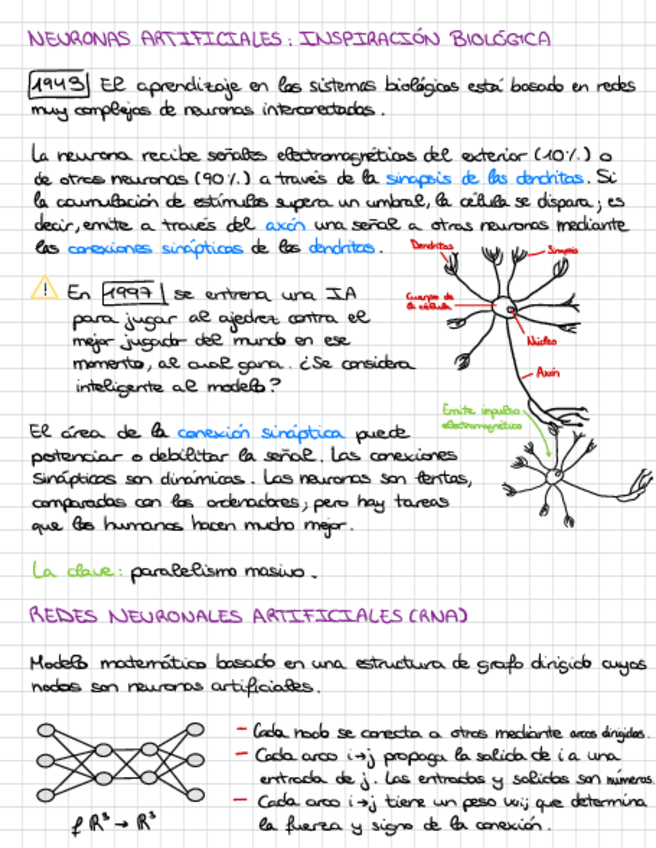 NEURONAS ARTIFICIALES: INSPIRACIÓN BIOLÓGICA
1943 El aprendizaje en los sistemas biológicos está basado en redes
muy complejas de neuronas interconectadas.
La neurona recibe señales electromagnéticas del exterior (10%) o
de otras neuronas (90%) a través de la sinapsis de las dendritas. Si
la acumulación de estímulos supera un umbral, la célula se dispara; es
decir, emite a través del axón una señal a otras neuronas mediante
las conexiones sinápticas de las dendritas.
Dendritas
Sinapsis
Cuerpo de
la célula
Núcleo
Axón
! En 1997 se entrena una IA
para jugar al ajedrez contra el
mejor jugador del mundo en ese
momento, al cual gana. ¿Se considera
inteligente al modelo?
Emite impulso
electromagnético
El área de la conexión sináptica puede
potenciar o debilitar la señal. Las conexiones
sinápticas son dinámicas. Las neuronas son lentas,
comparadas con los ordenadores, pero hay tareas
que los humanos hacen mucho mejor.
La clave: paralelismo masivo.
REDES NEURONALES ARTIFICIALES (RNA)
Modelo matemático basado en una estructura de grafo dirigido cuyos
nodos son neuronas artificiales.
- Cada nodo se conecta a otros mediante arcos dirigidos.
- Cada arco i→j propaga la salida de i a una
entrada de j. Las entradas y salidas son números.
- Cada arco i→j tiene un peso wij que determina
la fuerza y signo de la conexión.
f R³ → R³